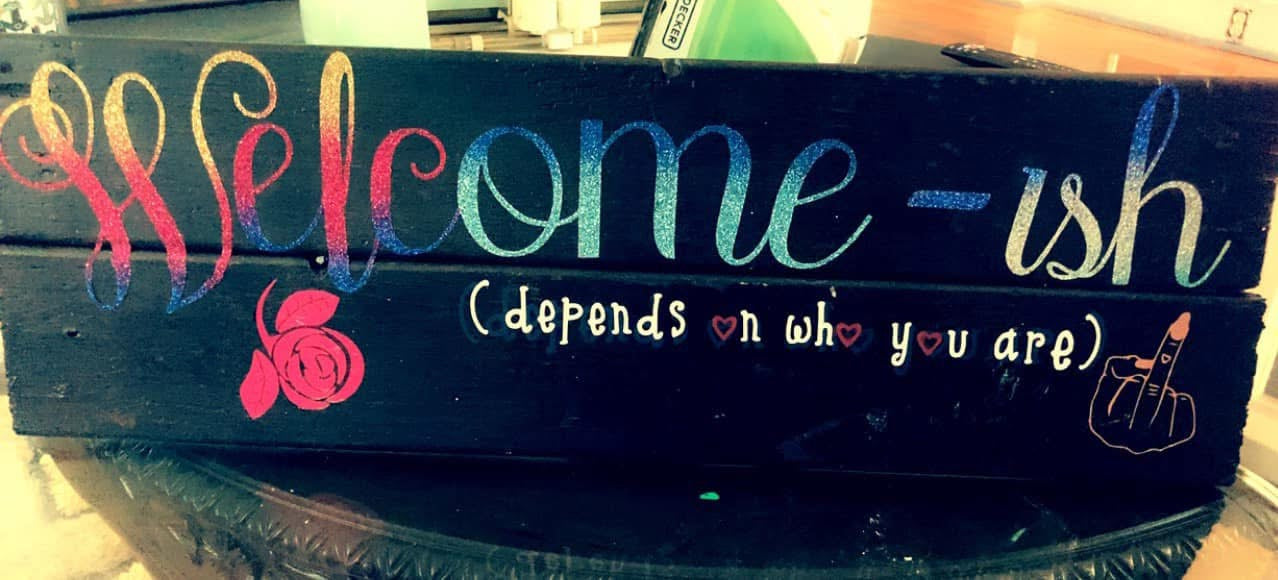 DECKER
Welcome-ish
(depends on who you are)